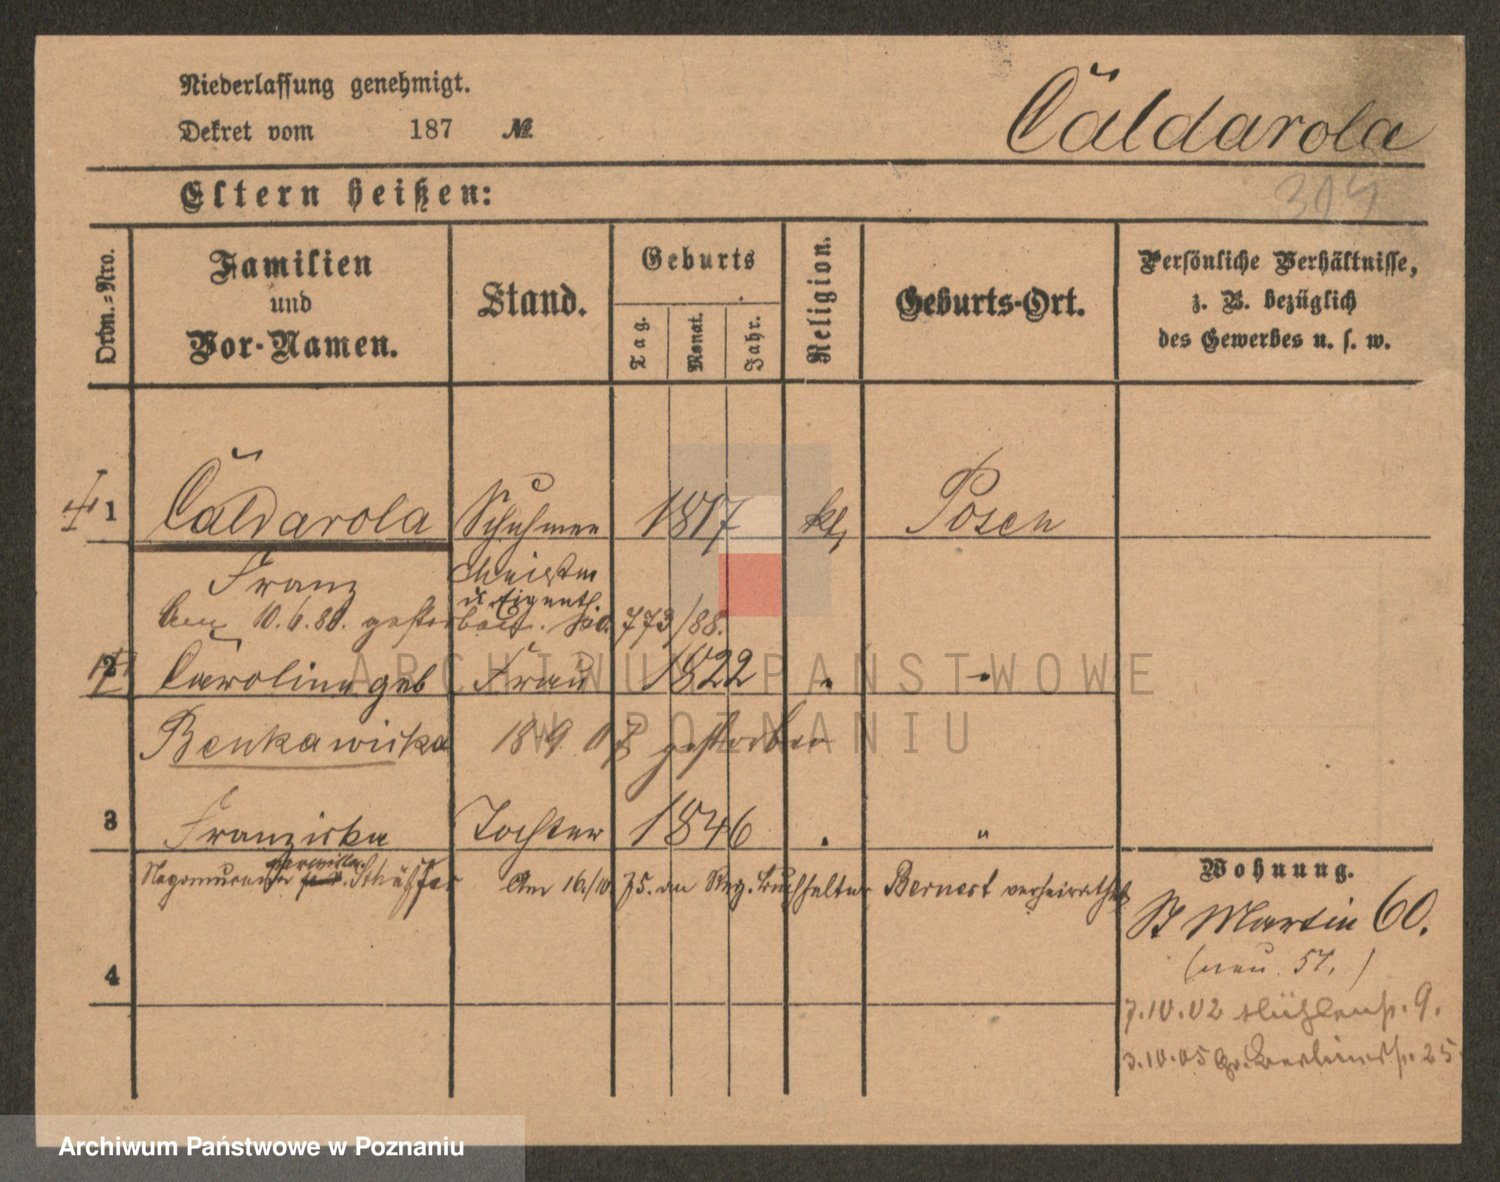 Niederlassung genehmigt.
Dekret vom 187 №
Căldarola
314
Eltern heißen:
Ordn.-Nro.
Familien
und
Vor-Namen.
Stand.
Geburts
Tag.
Monat.
Jahr.
Religion.
Geburts-Ort.
Persönliche Verhältnisse,
z. B. bezüglich
des Gewerbes u. s. w.
1 Căldarola Schuhmen 1817 kl, Posen
Franz Meister
u. Eigenth.
Am 10.6.88. gestorben. No. 773/88.
2 Carolina geb Frau 1822 " "
Benkawicka 18 9 07 gestorben
3 Franziska Tochter 1846 " "
Am 16./10 75. an Reg. Buchhalter Bernert verheirathet
Wohnung.
St Martin 60.
(neu 57.)
4
7.10.02 Mühlenstr. 9.
3.10.05 Gr. Berlinerstr. 25
ARCHIWUM PAŃSTWOWE
W POZNANIU
Archiwum Państwowe w Poznaniu